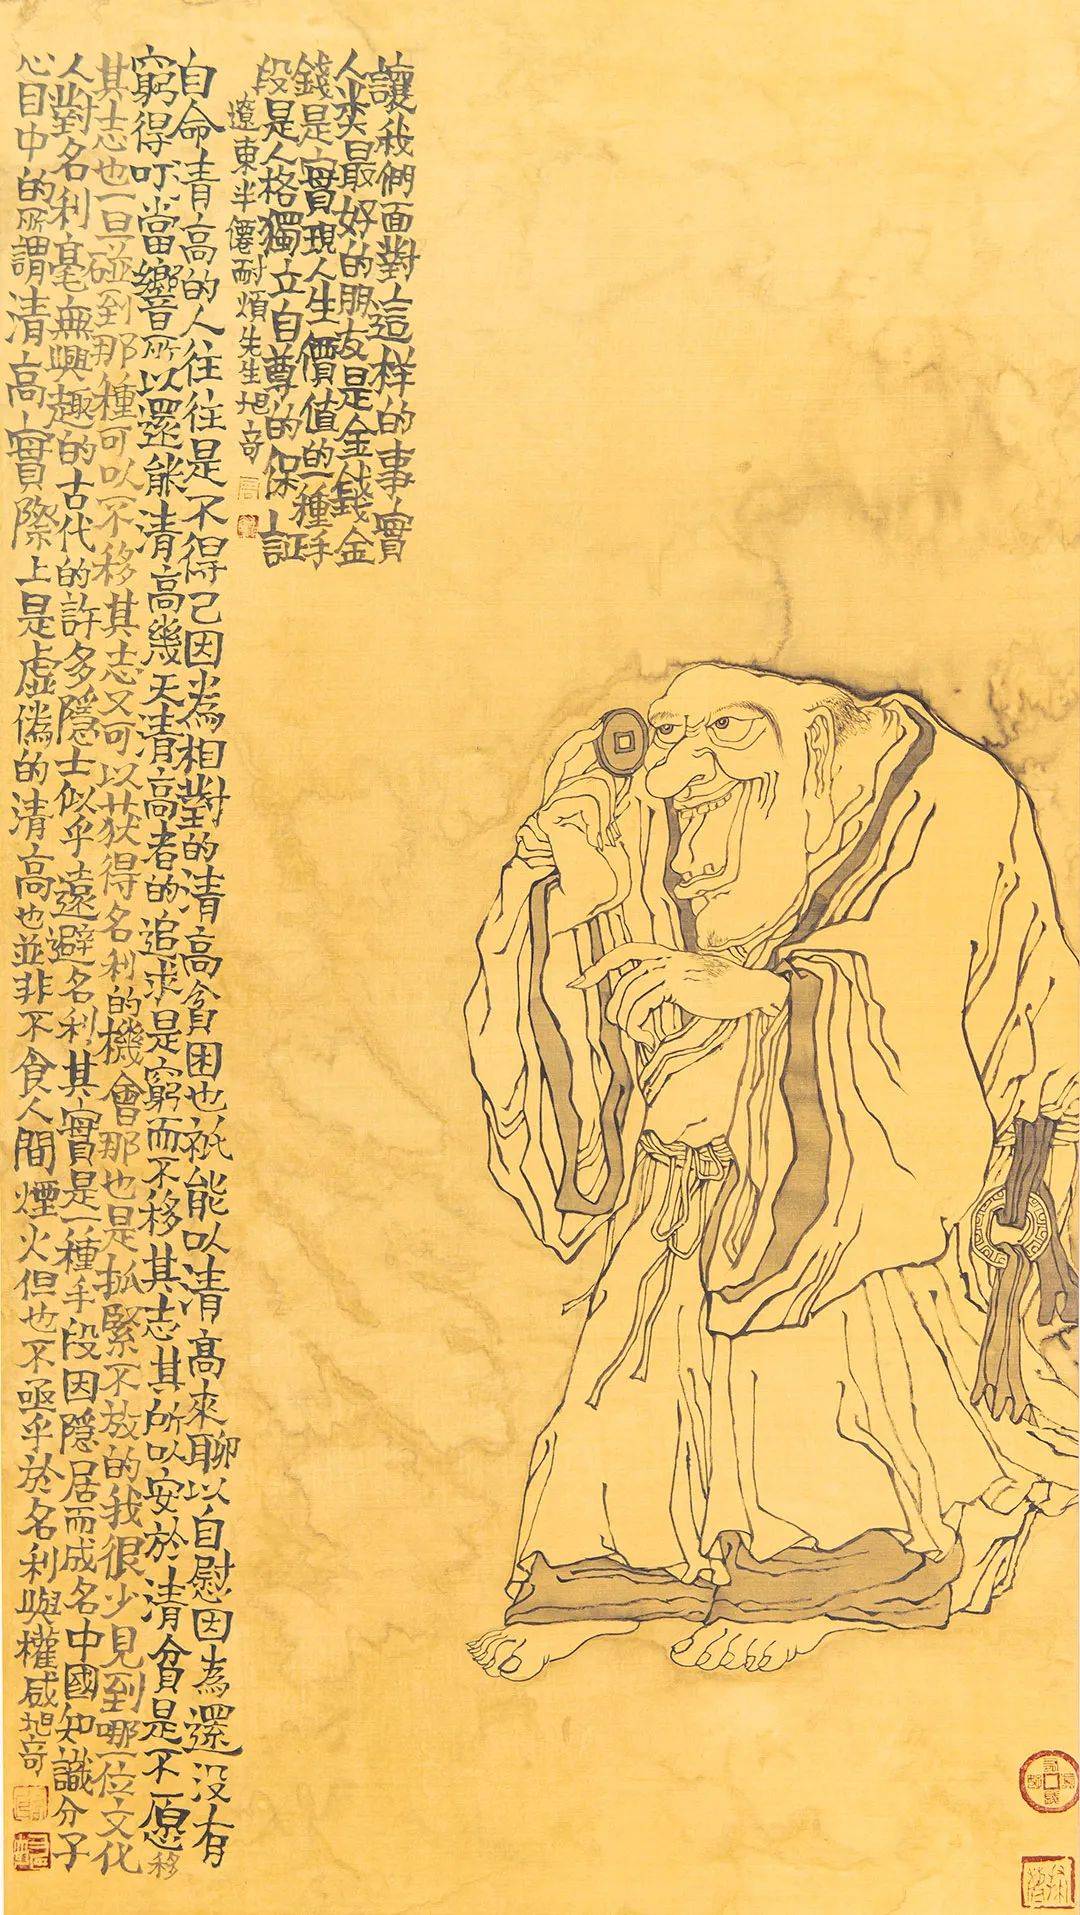 讓我們面對這样的事實
人类最好的朋友是金錢金
錢是實現人生價值的一種手
段是人格獨立自尊的保証
遼東半僊耐煩先生旭奇
自命清高的人往往是不得已因為相對的清高貧困也祇能以清高來聊以自慰因為還没有
窮得叮噹響所以還能清高幾天清高者的追求是窮而不移其志其所以安於清貧是不愿移
其志也一旦碰到那種可以不移其志又可以获得名利的機會那也是抓緊不放的我很少見到哪一位文化
人對名利毫無興趣的古代的許多隱士似乎遠避名利其實是一種手段因隱居而成名中國知識分子
心目中的所謂清高實際上是虛僞的清高也並非不食人間煙火但也不亟乎於名利與權威旭奇